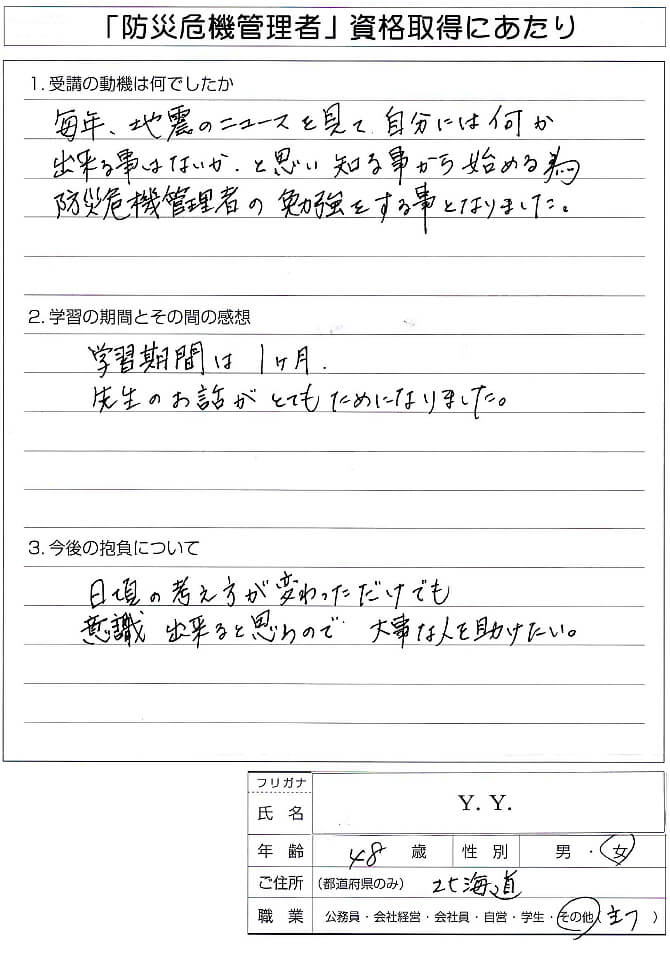 「防災危機管理者」資格取得にあたり
1. 受講の動機は何でしたか
毎年、地震のニュースを見て、自分には何か
出来る事はないか、と思い知る事から始める為
防災危機管理者の勉強をする事となりました。
2. 学習の期間とその間の感想
学習期間は1ヶ月.
先生のお話がとてもためになりました。
3. 今後の抱負について
日頃の考え方が変わっただけでも
意識出来ると思わので 大事な人を助けたい。
フリガナ
氏名 Y. Y.
年齢 48 歳 性別 男・女
ご住所 (都道府県のみ) 北海道
職業 公務員・会社経営・会社員・自営・学生・その他( )